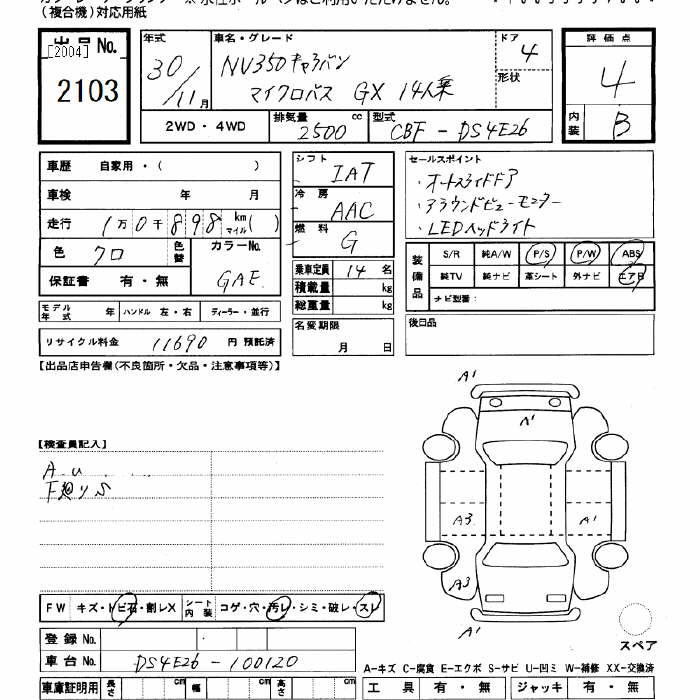 (複合機)対応用紙
出品No.
[2004]
2103
年式
30/11月
車名・グレード
NV350キャラバン
マイクロバス GX 14人乗
ドア
4
形状
評価点
4
内装
B
2WD・4WD
排気量
2500 cc
型式
CBF-DS4E26
車歴 自家用・( )
車検 年 月
走行 1万0千898 km マイル( )
色 クロ
色替
カラーNo.
GAE
保証書 有・無
モデル年式 年 ハンドル 左・右 ディーラー・並行
リサイクル料金 11690 円 預託済
シフト
IAT
冷房
AAC
燃料
G
乗車定員 14 名
積載量 kg
総重量 kg
名変期限
月 日
セールスポイント
・オートスライドドア
・アラウンドビューモニター
・LEDヘッドライト
装備品
S/R 純A/W P/S P/W ABS
純TV 純ナビ 革シート 外ナビ エアB
ナビ型番:
後日品
【出品店申告欄(不良箇所・欠品・注意事項等)】
【検査員記入】
A.u.
F廻りS
A1
A1
A3
A1
A3
A1
スペア
FW キズ・トビ石・割レX
シート内装 コゲ・穴・汚レ・シミ・破レ・スレ
登録No.
車台No. DS4E26-100120
A-キズ C-腐食 E-エクボ S-サビ U-凹ミ W-補修 XX-交換済
車庫証明用 長さ cm 幅 cm 高さ cm
工具 有・無 ジャッキ 有・無